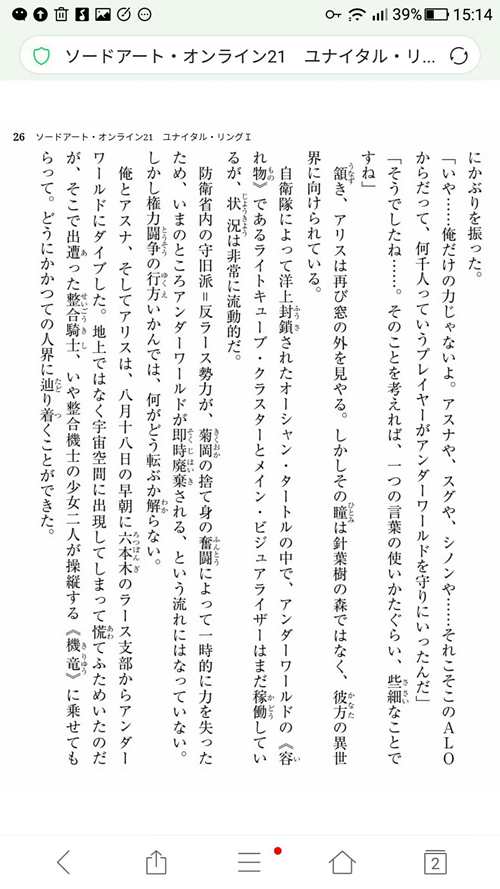 39% 15:14
ソードアート・オンライン21 ユナイタル・リ...
26 ソードアート・オンライン21 ユナイタル・リングⅠ
にかぶりを振った。
「いや……俺だけの力じゃないよ。アスナや、スグや、シノンや……それこそこのＡＬＯ
からだって、何千人っていうプレイヤーがアンダーワールドを守りにいったんだ」
「そうでしたね……。そのことを考えれば、一つの言葉の使いかたぐらい、些細なことで
すね」
頷き、アリスは再び窓の外を見やる。しかしその瞳は針葉樹の森ではなく、彼方の異世
界に向けられている。
自衛隊によって洋上封鎖されたオーシャン・タートルの中で、アンダーワールドの《容
れ物》であるライトキューブ・クラスターとメイン・ビジュアライザーはまだ稼働してい
るが、状況は非常に流動的だ。
防衛省内の守旧派＝反ラース勢力が、菊岡の捨て身の奮闘によって一時的に力を失った
ため、いまのところアンダーワールドが即時廃棄される、という流れにはなっていない。
しかし権力闘争の行方いかんでは、何がどう転ぶか解らない。
俺とアスナ、そしてアリスは、八月十八日の早朝に六本木のラース支部からアンダー
ワールドにダイブした。地上ではなく宇宙空間に出現してしまって慌てふためいたのだ
が、そこで出遭った整合騎士、いや整合機士の少女二人が操縦する《機竜》に乗せても
らって。どうにかかつての人界に辿り着くことができた。
2